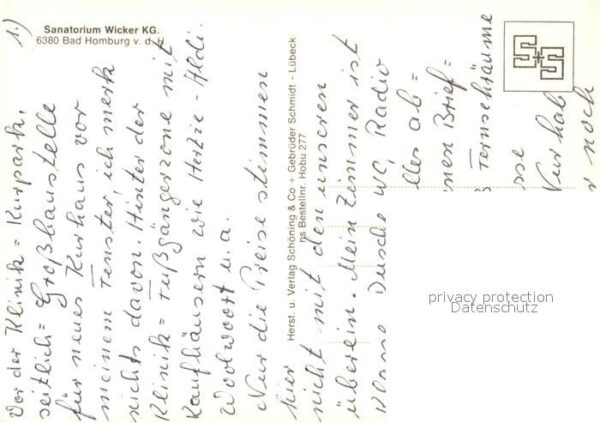 1.)
Sanatorium Wicker KG.
6380 Bad Homburg v. d. H
Vor der Klinik = Kurpark,
seitlich = Großbaustelle
für neues Kurhaus vor
meinem Fenster, ich merk
nichts davon. Hinter der
Klinik = Fußgängerzone mit
Kaufhäusern wie Hertie - Aldi.
Woolwoort u. a.
Nur die Preise stimmen
hier
nicht mit den unseren
überein. Mein Zimmer ist
Klasse Dusche WC, Radio
lles ab =
nen Brief =
Fernsehräume
sse
Nur hab
r noch
Herst. u. Verlag Schöning & Co + Gebrüder Schmidt - Lübeck
ns Bestellnr. Hobu 277
privacy protection
Datenschutz